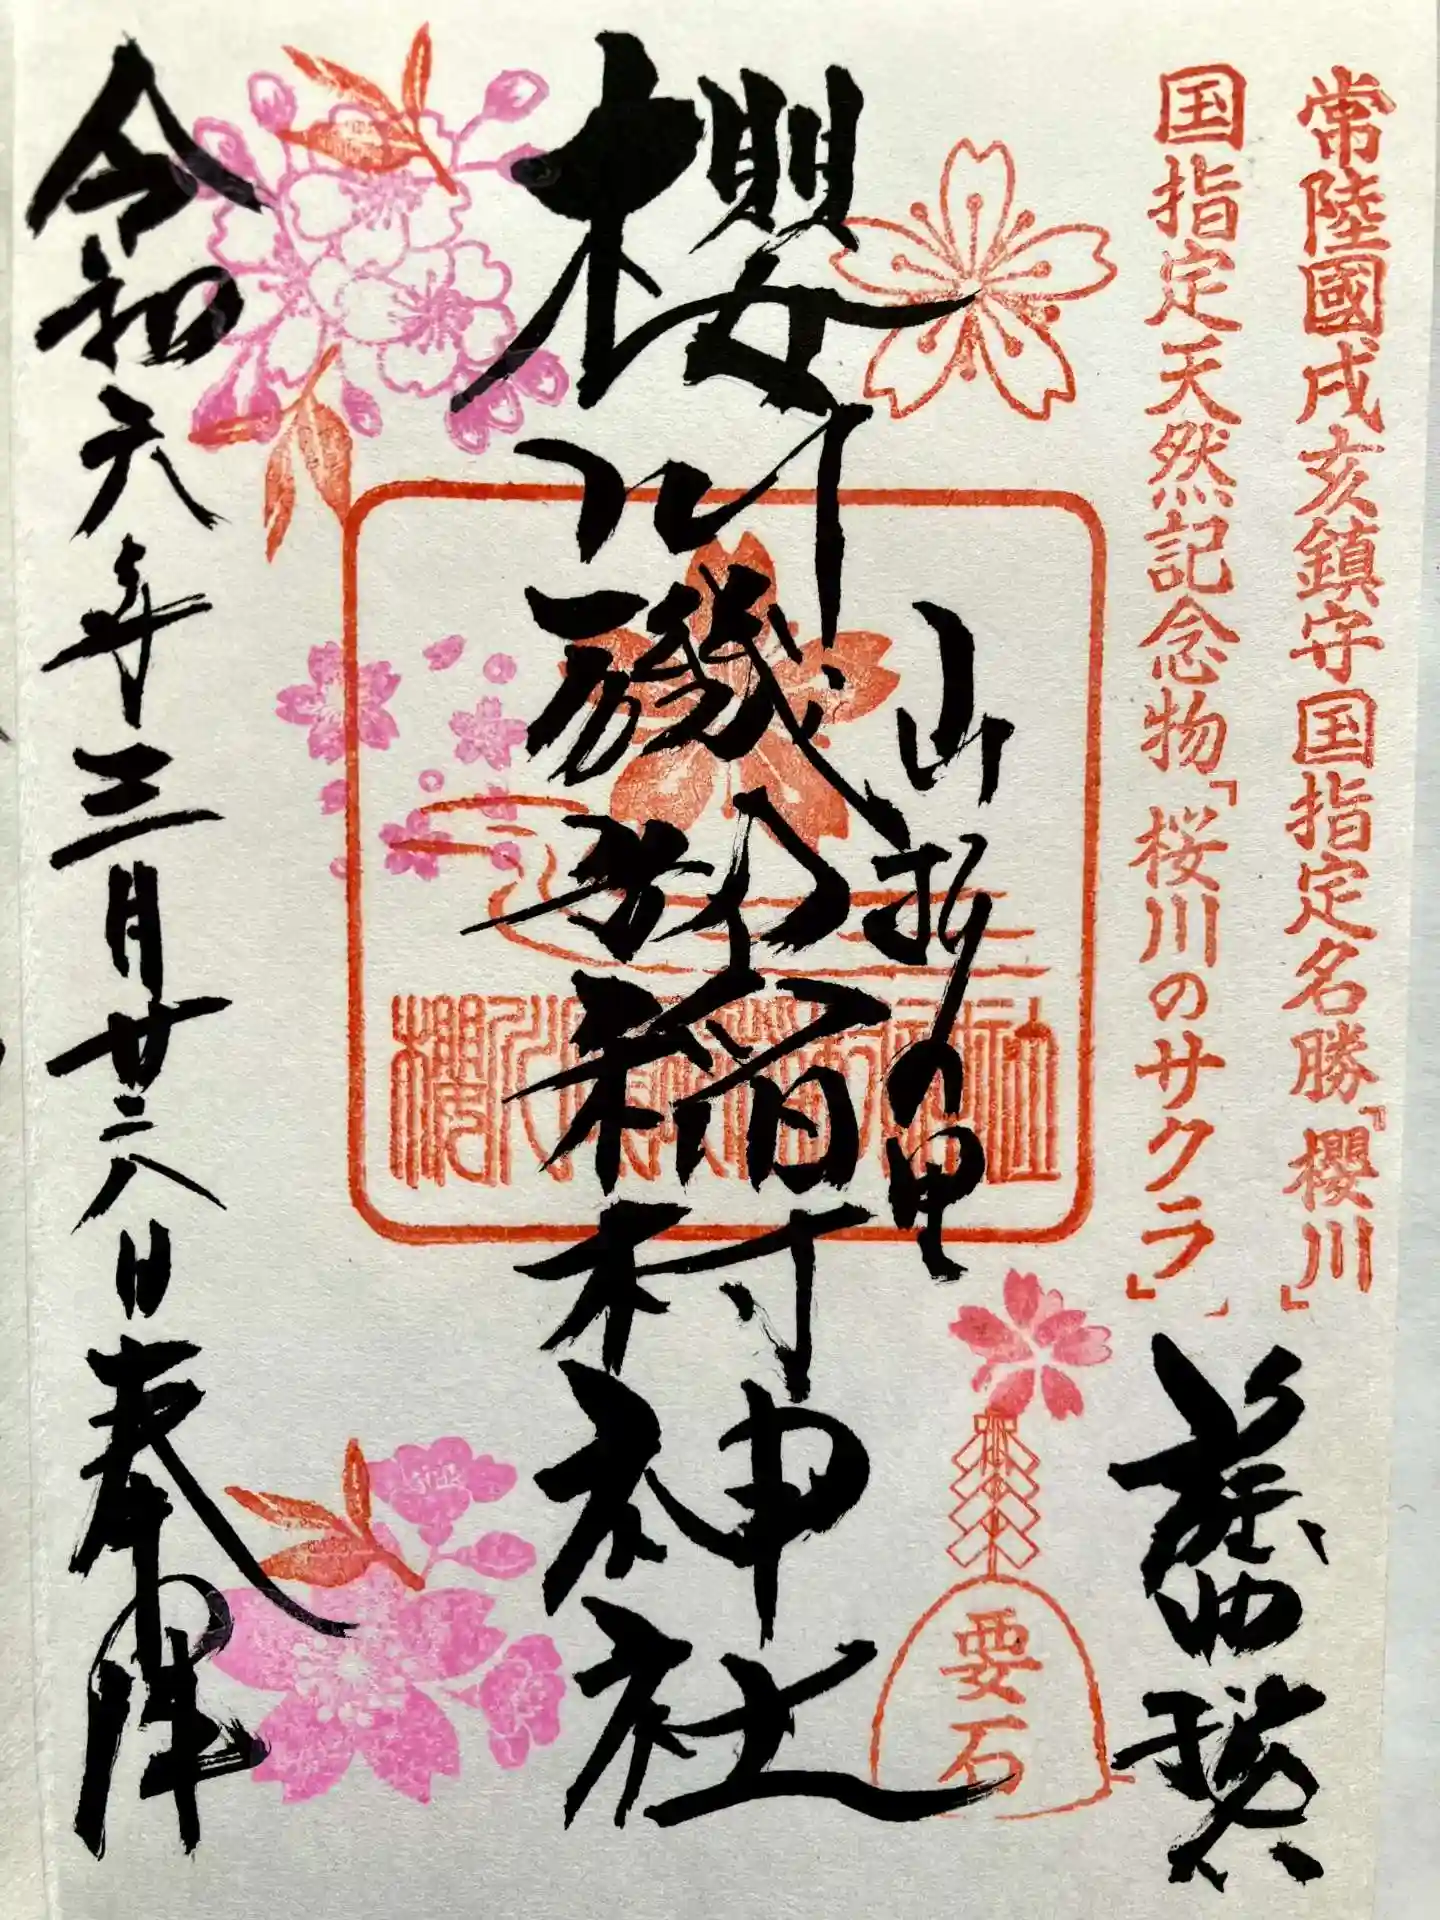 常陸國戌亥鎮守国指定名勝「櫻川」
国指定天然記念物「桜川のサクラ」
櫻川磯部稲村神社
山桜の里
櫻川磯部稲村神社
要石
令和六年三月廿二八日奉拝